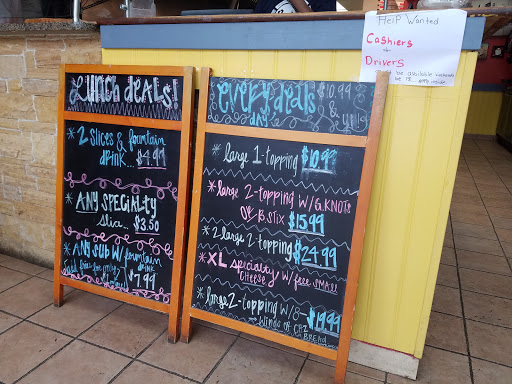 Help Wanted
Cashiers
+
Drivers
be available weekends
Lunch deals!
* 2 Slices & fountain
drink... $4.99
* ANY SPECIALTY
slice. $3.50
* ANY SUB w/ fountain
drink
$7.99
every deals
day
$10.99
& up!
* large 1-topping $10.99
* large 2-topping w/ G.KNOTS
OR B.STIX $15.99
* 2 large 2 topping $24.99
* XL specialty w/ free SMALL
CHEESE
* large 2-topping w/ 8-
wings OR CHZ $19.99
BREAD